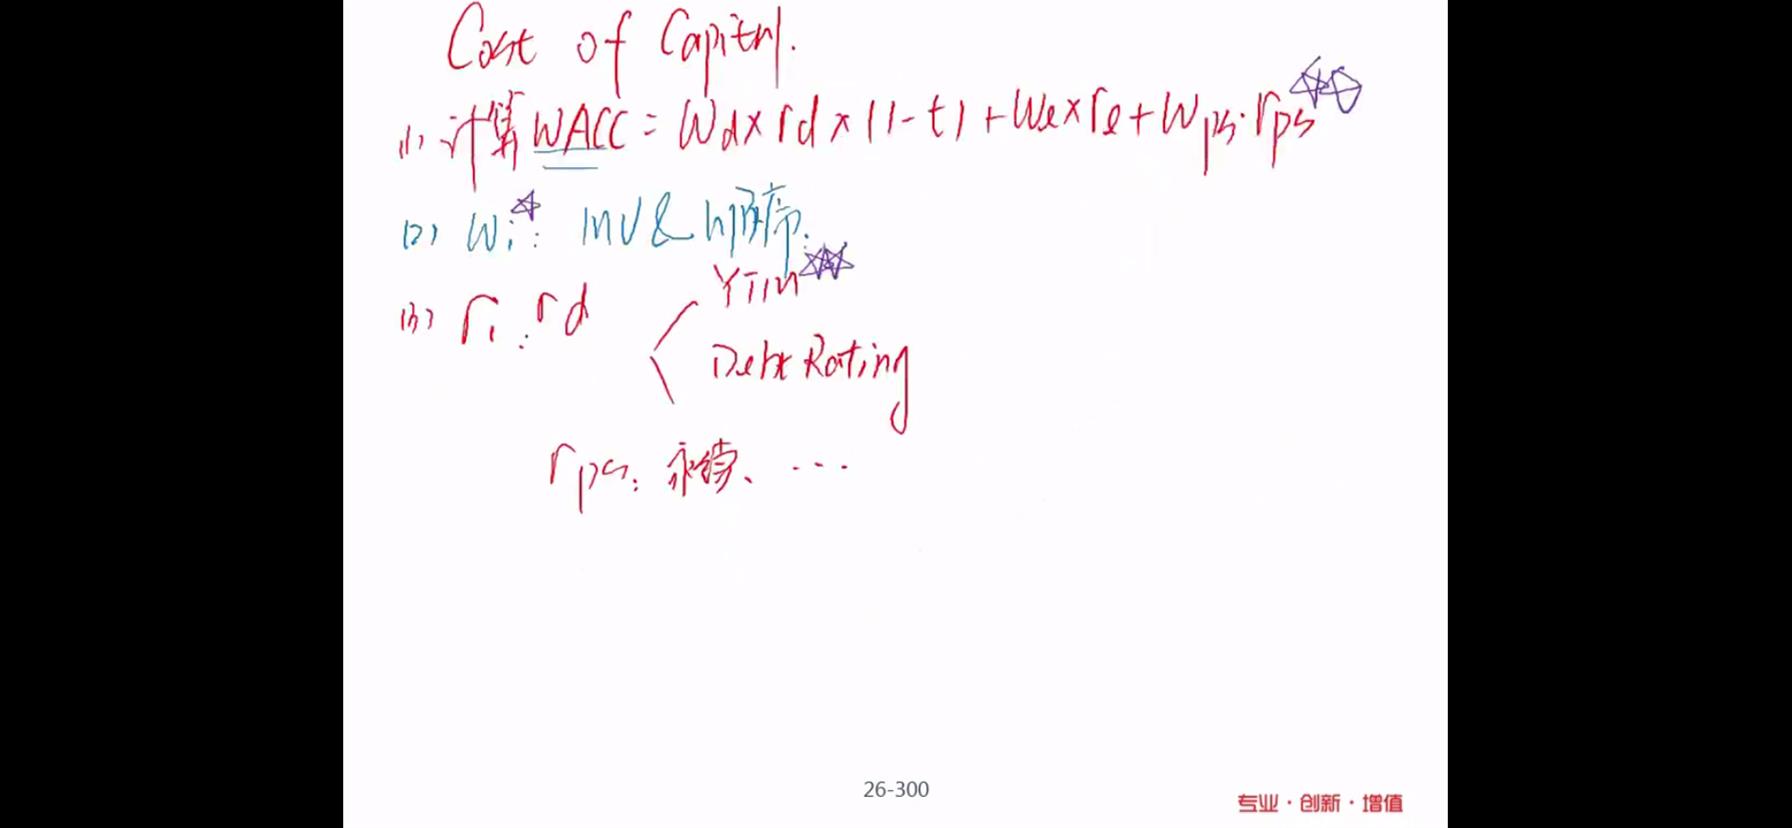 Cost of Capital.
(1) 计算 WACC = Wd × rd × (1-t) + We × re + Wps · rps
(2) Wi: MV & 顺序.
(3) ri: rd
YTM
Debt Rating
rps: 永续、...
26-300
专业·创新·增值